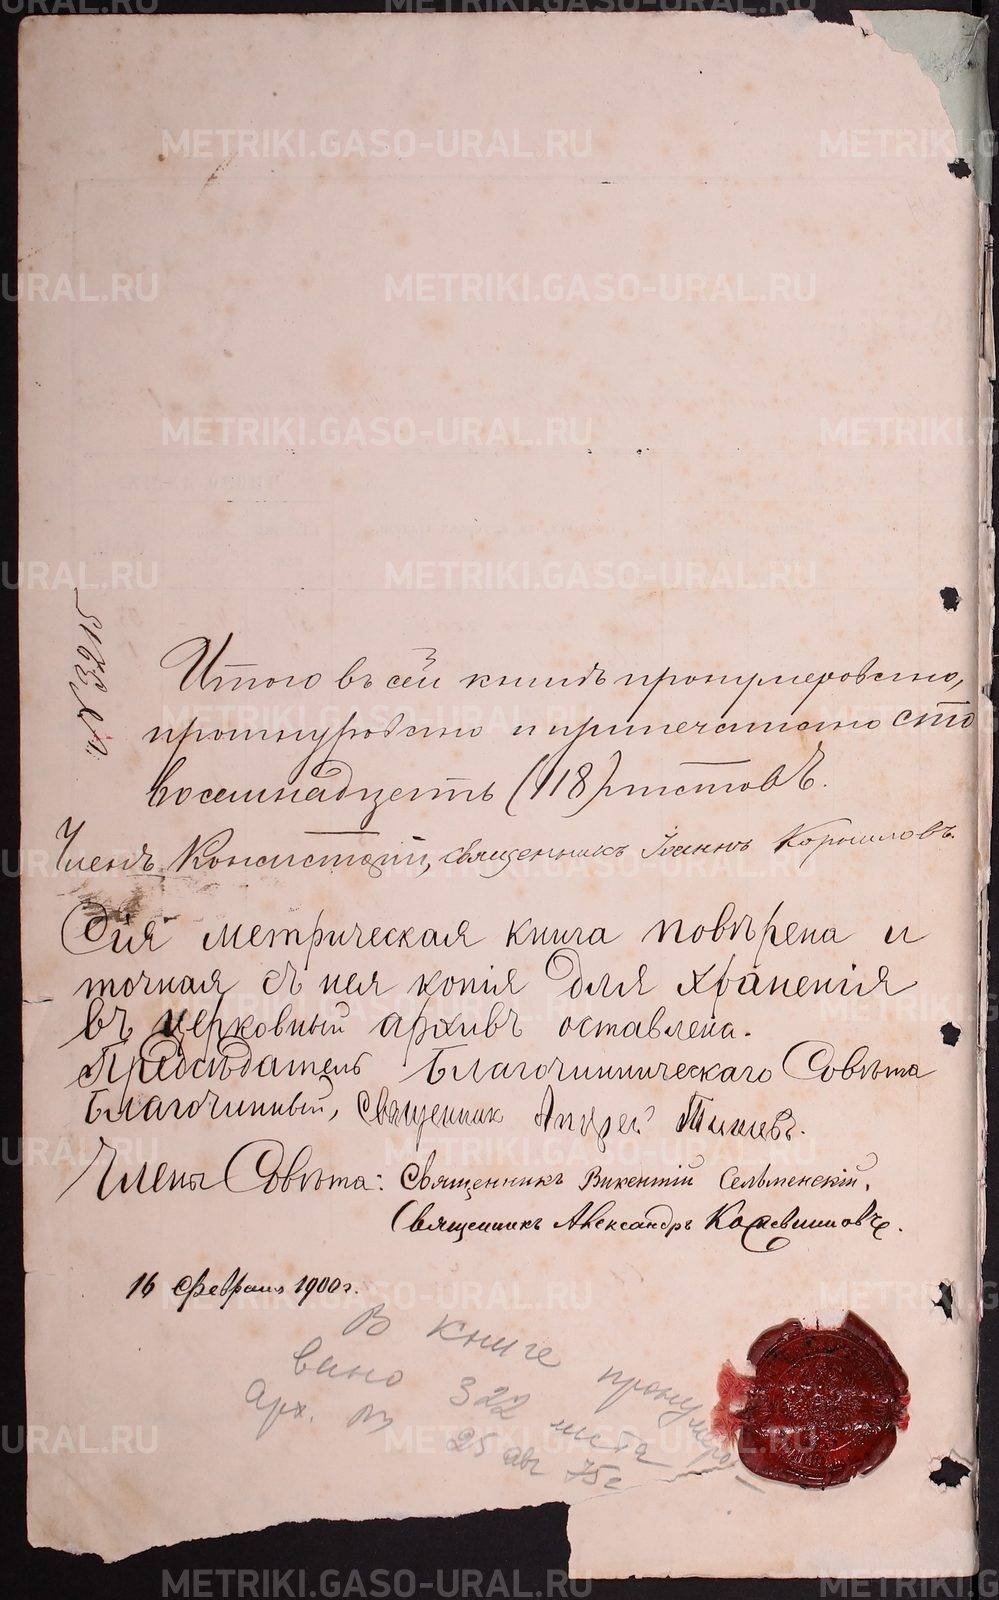 № 3215
Итого въ сей книгѣ пронумеровано,
прошнуровано и припечатано сто
восемнадцать (118) листовъ.
Членъ Консисторіи, священникъ Іоаннъ Корниловъ.
Сія метрическая книга повѣрена и
точная съ нея копія для храненія
въ церковный архивъ оставлена.
Предсѣдатель Благочинническаго Совѣта
Благочинный, Священник Андрей
Члены Совѣта: Священникъ Викентій Сельменскій.
Священникъ Александръ
16 Февраля 1900 г.
В книге пронумеро-
вано 322 листа
Арх. 25 авг 75г
METRIKI.GASO-URAL.RU